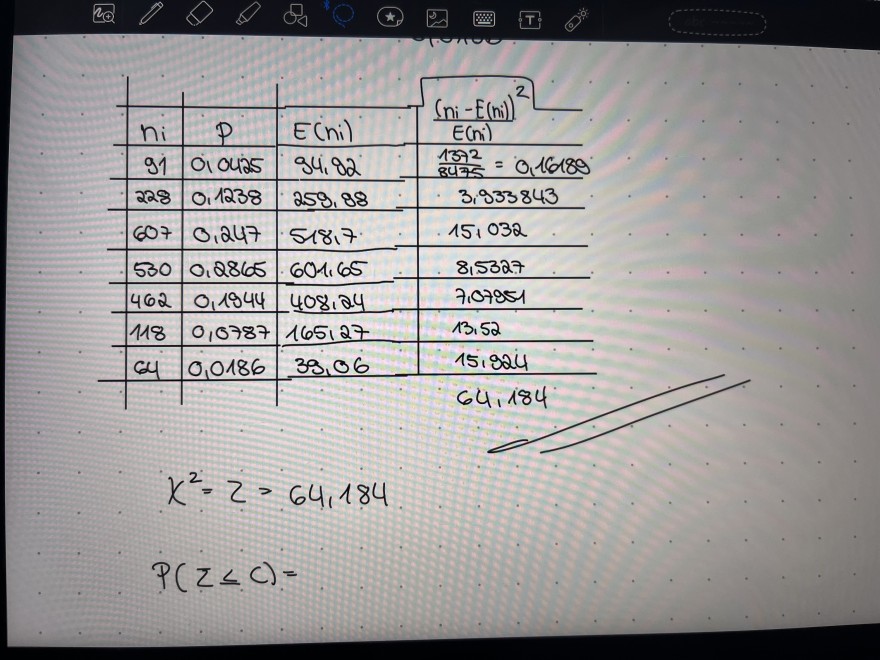 (ni - E(ni))²
ni P E(ni) E(ni)
91 0,0425 94,92 1372/8475 = 0,16189
228 0,1238 259,98 3,933843
607 0,247 518,7 15,032
530 0,2865 601,65 8,5327
462 0,1944 408,24 7,07951
118 0,0787 165,27 13,52
64 0,0186 39,06 15,924
64,184
X² = Z = 64,184
P(Z ≤ C) =